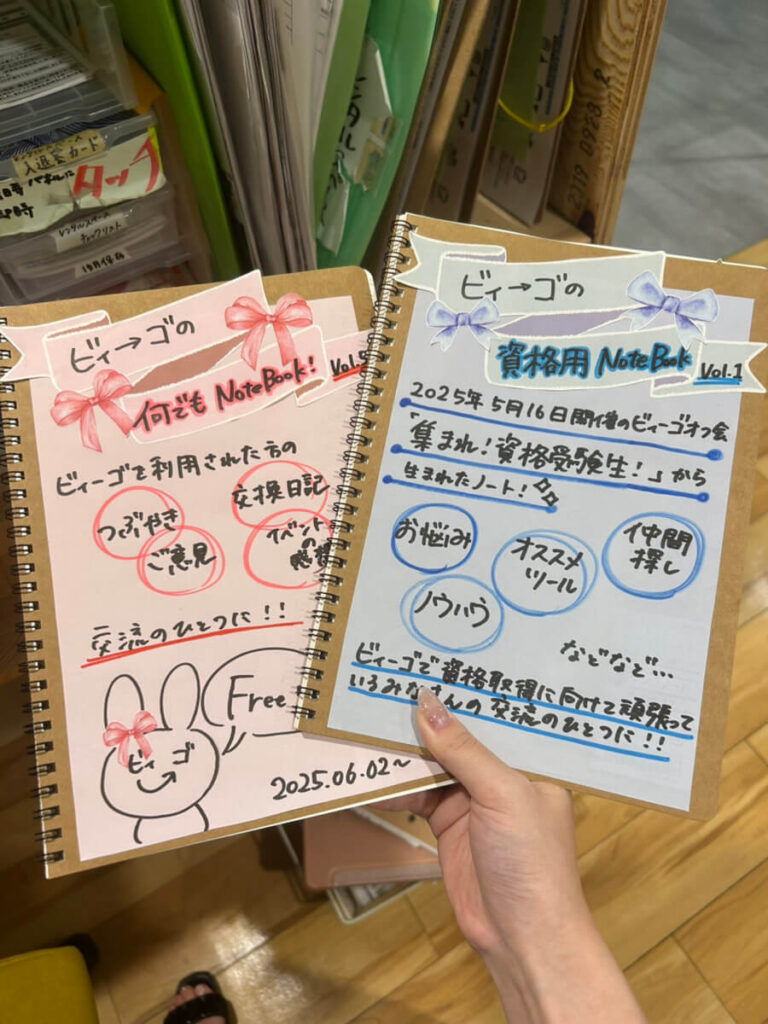 入退会カード
タッチ
レンタルスペース
チェックリスト
2719 0923 2
ビィ→ゴの
何でも NoteBook!
Vol.5
ビィーゴを利用された方の
つぶやき
交換日記
ご意見
イベント
の
感想
交流のひとつに!!
Free
ビィ ゴ
2025.06.02~
ビィ→ゴの
資格用 NoteBook
Vol.1
2025年5月16日開催のビィーゴオフ会
「集まれ!資格受験生!」から
生まれたノート!
お悩み
オススメ
ツール
仲間
探し
ノウハウ
などなど…
ビィーゴで資格取得に向けて頑張って
いるみなさんの交流のひとつに!!